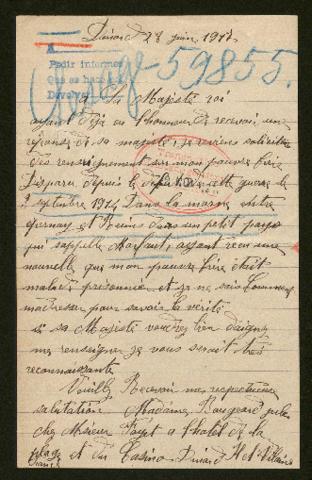 Dinard 28 juin 1917
Pedir informes
Que se ha
Devolver
59855
a Sa Majesté roi
ayant déja eu l'honneur de recevoir une
réponse de sa majesté, je viens solliciter
des renseignement sur mon pauvre frère
Disparu depuis le cette guerre le
septembre 1914 Dans la marne entre
Epernay et Reims dans un petit pays
qui sappelle ayant recu une
nouvelle que mon pauvre frère était
malade prisonnier et je ne sais comment
madresser pour savoir la vérité
si sa Majesté voudrez bien daigner
me renseigner je vous serait très
reconnaissante
Veuillez Recevoir mes respectueuse
salutation Madame Rougeard
chez Monsieur a l'hotel de la
plage et du Casino Dinard Ile et Vilaine
France